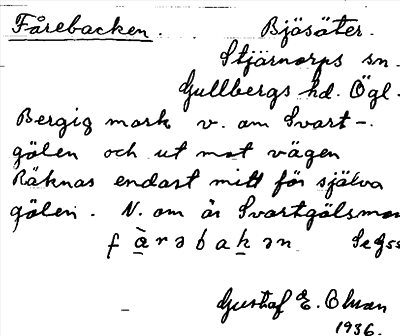 Fårebacken. Bjäsäter.
Stjärnorps sn.
Gullbergs hd. Ögl.
Bergig mark v. om Svart-
gölen och ut mot vägen
Räknas endast mitt för själva
gölen. N. om är Svartgölsmon
fà̱rəbaḵən
Gustaf E. Olsson
1936.